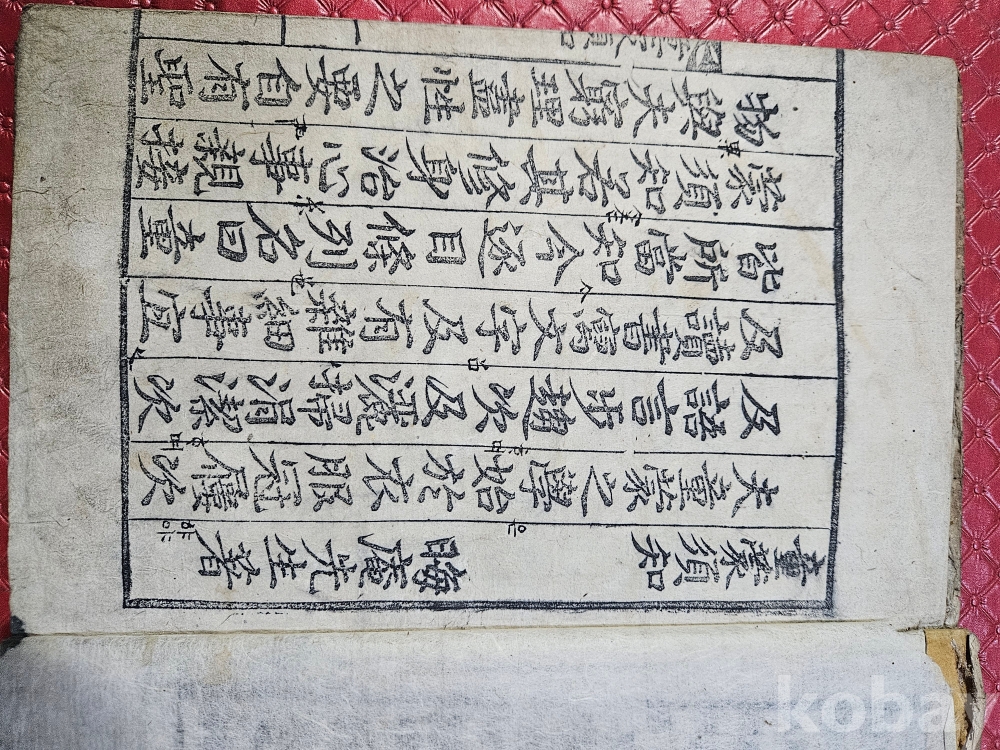 童蒙須知 晦庵先生著
夫童蒙之學始於衣服冠屨次
及語言步趨次及灑掃涓潔次
及讀書寫文字及有雜細事宜
皆所當知今逐目條列名曰童
蒙須知若其修身治心事親接
物與夫窮理盡性之要自有聖
童蒙須知 一
kobay